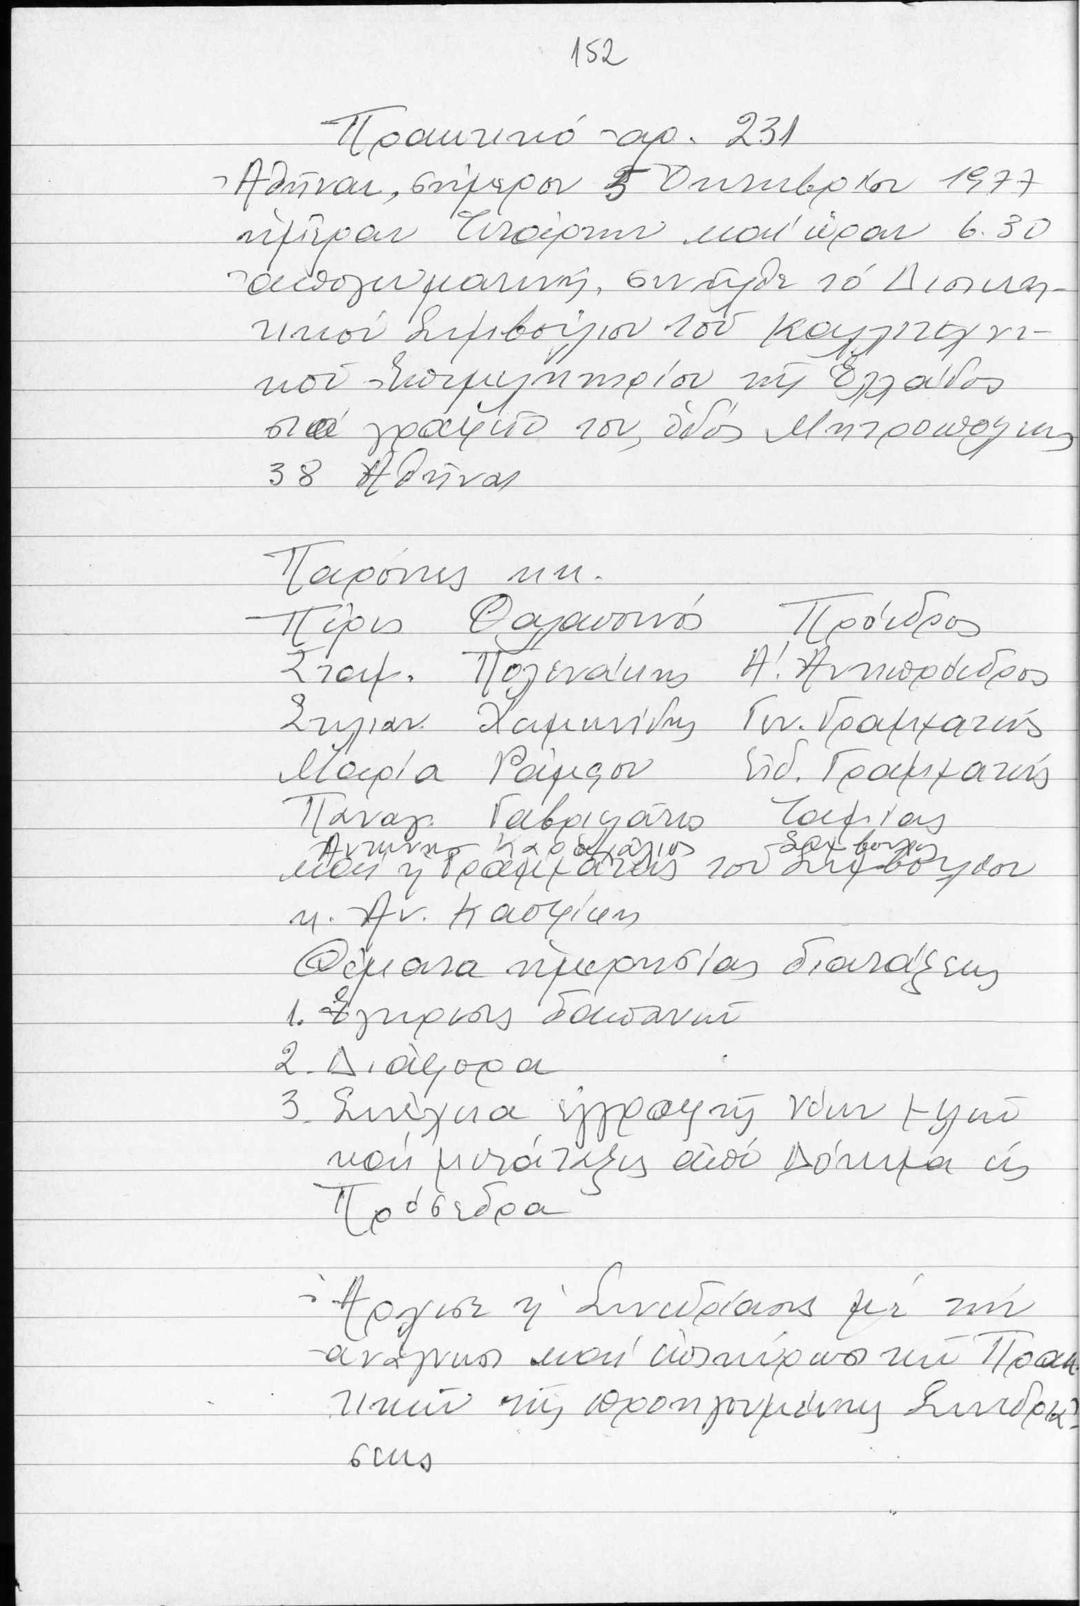 152
Πρακτικό ἀρ. 231
Ἀθῆναι, σήμερον 5 Ὀκτωβρίου 1977
ἡμέραν Τετάρτην καί ὥραν 6.30
ἀπογευματινή, συνῆλθε τό Διοικη-
τικόν Συμβούλιον τοῦ Καλλιτεχνι-
κοῦ Ἐπιμελητηρίου τῆς Ἑλλάδος
στά γραφεῖα του, ὁδός Μητροπόλεως
38 Ἀθῆναι
Παρόντες κκ.
Πέρις Πρόεδρος
Σταμ. Πολενάκης Α! Ἀντιπρόεδρος
Στυλιαν. Γεν. Γραμματεύς
Μαρία Ράμφου Εἰδ. Γραμματεύς
Παναγ. Γαβριελάτος Ταμίας
Ἀντώνης Καραχάλιος Σύμβουλος
καί ἡ Γραμματεύς τοῦ Συμβουλίου
κ. Αν.
Θέματα ἡμερησίας διατάξεως
1. Ἔγκρισις δαπανῶν
2. Διάφορα
3. Συνέχεια ἐγγραφῆς νέων μελῶν
καί μετάταξις ἀπό Δόκιμα εἰς
Πρόσεδρα
Ἄρχισε ἡ Συνεδρίασις μέ τήν
ἀνάγνωσι καί ἐπικύρωσι τῶν Πρακ-
τικῶν τῆς προηγουμένης Συνεδριά-
σεως